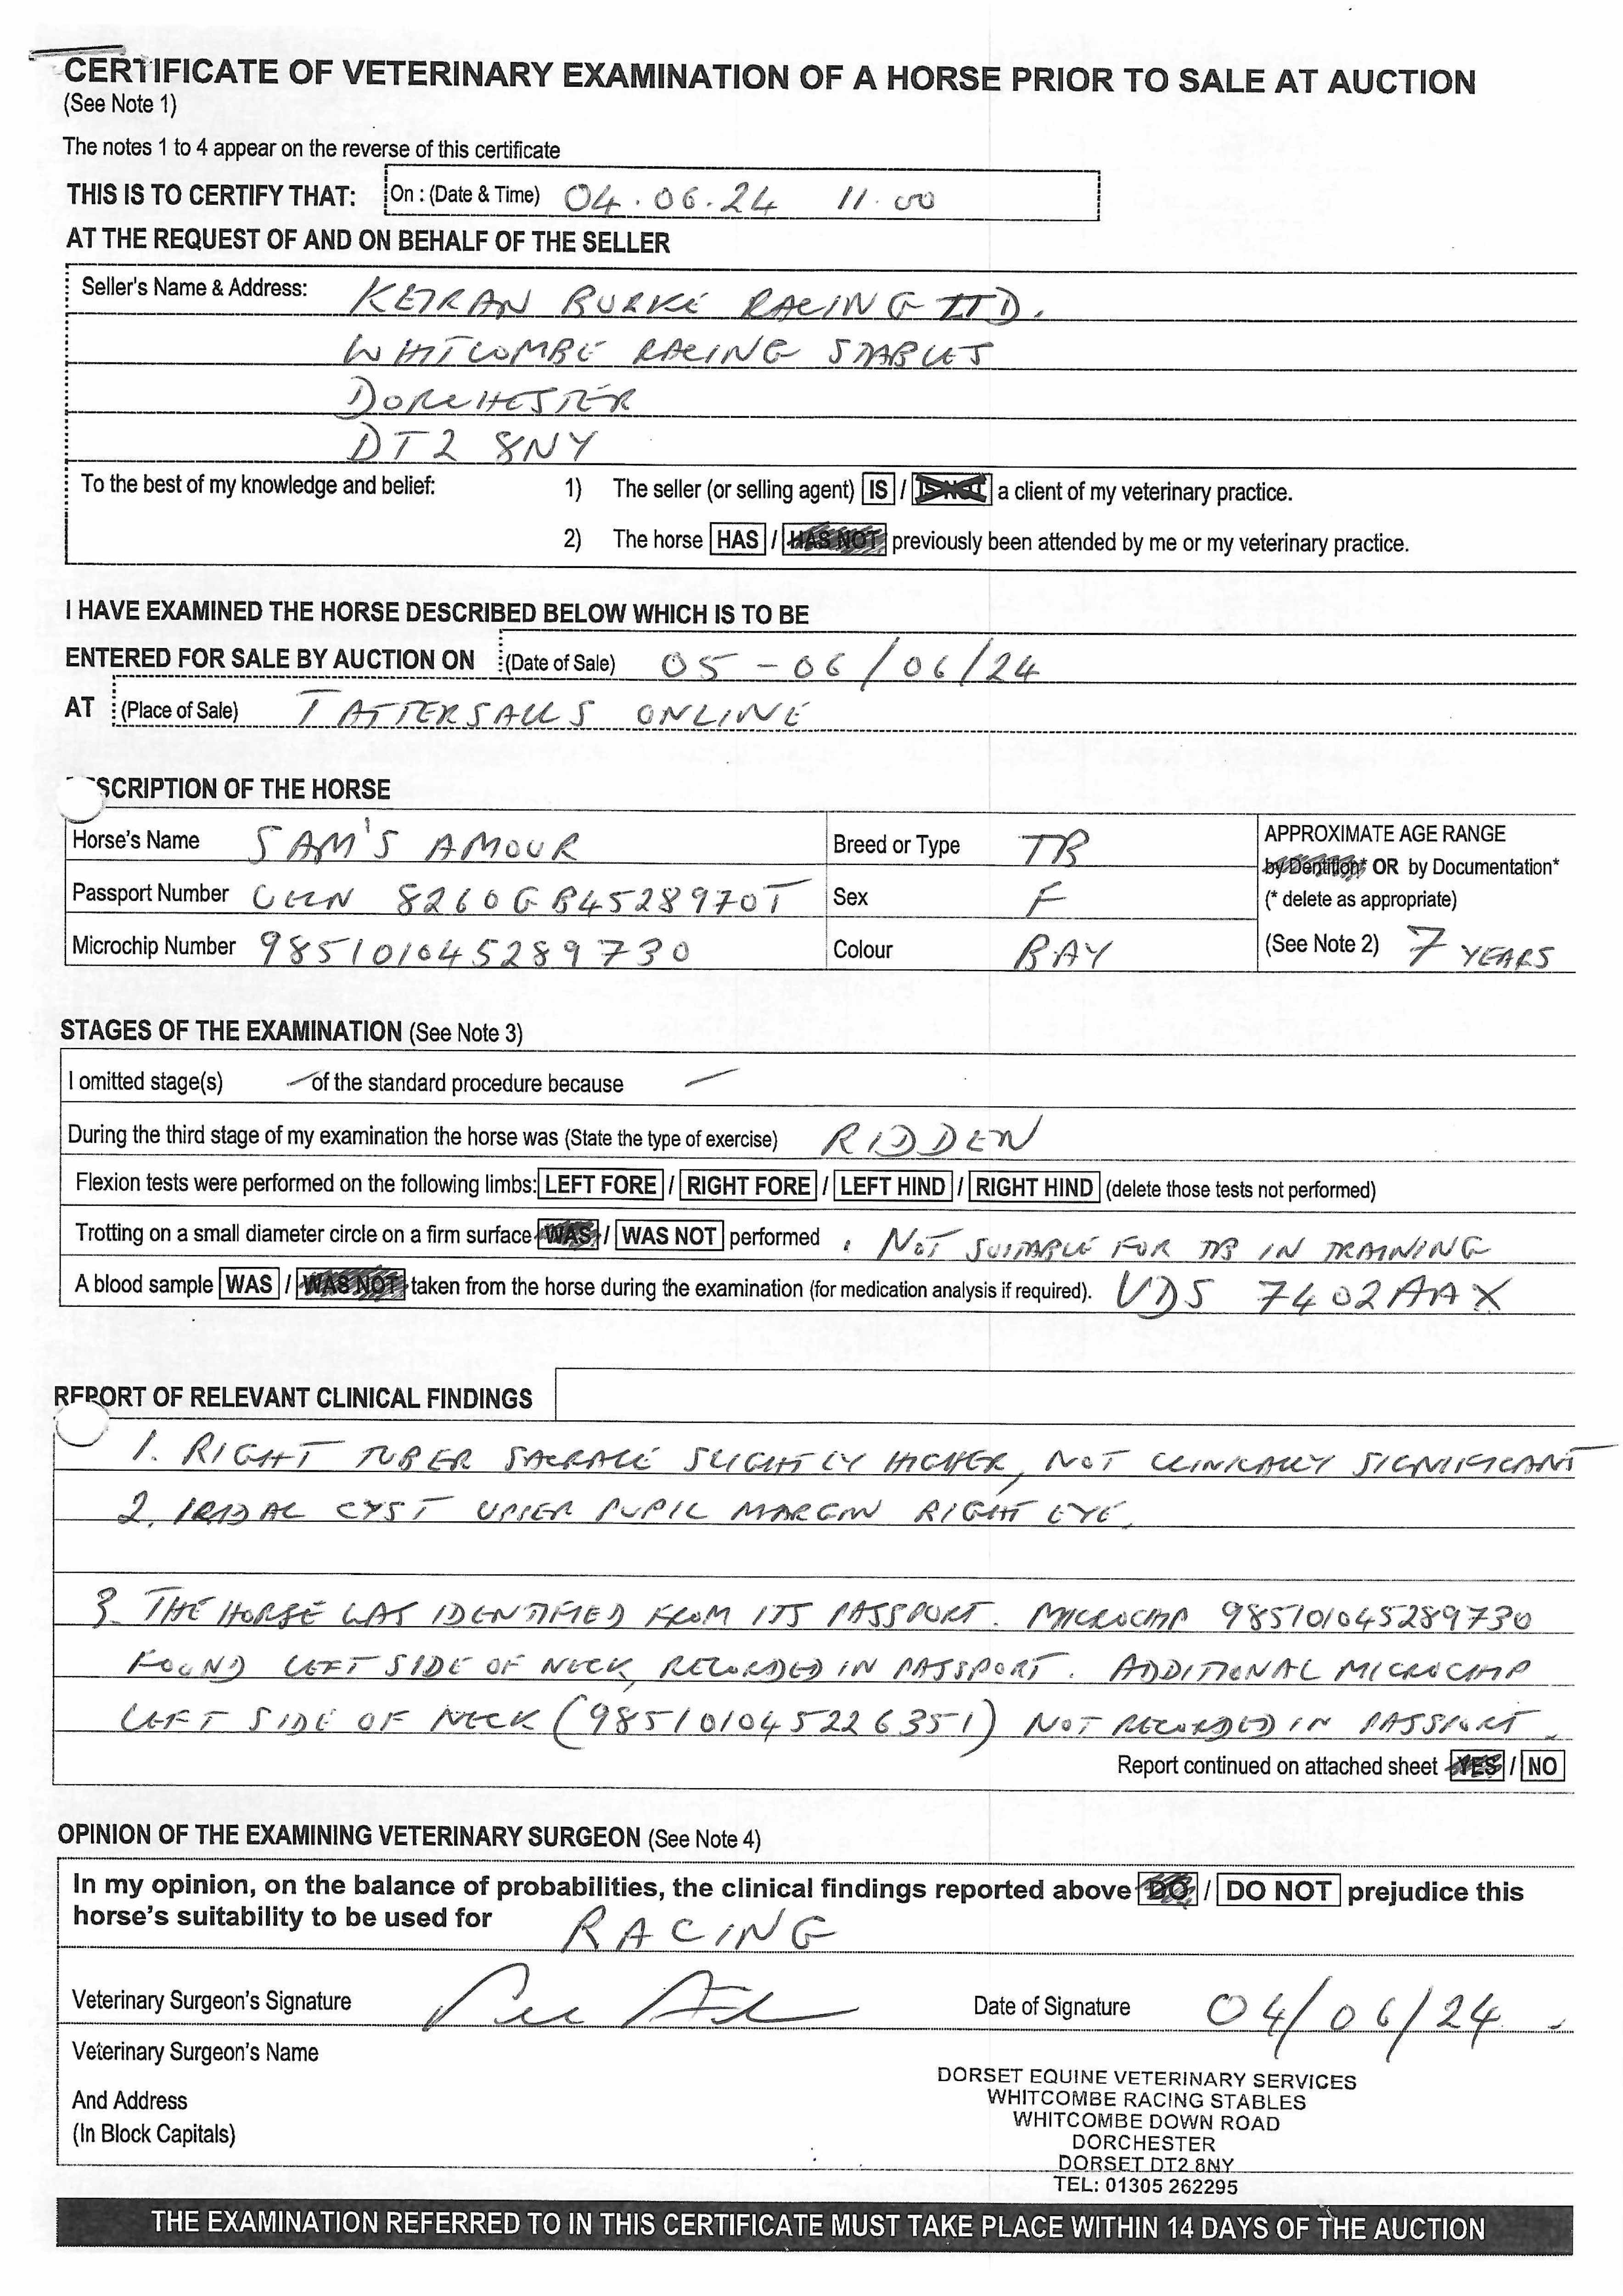 CERTIFICATE OF VETERINARY EXAMINATION OF A HORSE PRIOR TO SALE AT AUCTION
(See Note 1)
The notes 1 to 4 appear on the reverse of this certificate
THIS IS TO CERTIFY THAT: On : (Date & Time) 04.06.24 11.00
AT THE REQUEST OF AND ON BEHALF OF THE SELLER
Seller's Name & Address: KEIRAN BURKE RACING LTD.
WHITCOMBE RACING STABLES
DORCHESTER
DT2 8NY
To the best of my knowledge and belief: 1) The seller (or selling agent) IS / IS NOT a client of my veterinary practice.
2) The horse HAS / HAS NOT previously been attended by me or my veterinary practice.
I HAVE EXAMINED THE HORSE DESCRIBED BELOW WHICH IS TO BE
ENTERED FOR SALE BY AUCTION ON (Date of Sale) 05 - 06/06/24
AT (Place of Sale) TATTERSALLS ONLINE
SCRIPTION OF THE HORSE
Horse's Name SAM'S AMOUR Breed or Type TB APPROXIMATE AGE RANGE
by Dentition* OR by Documentation*
Passport Number UELN 8260GB4528970T Sex F (* delete as appropriate)
Microchip Number 985101045289730 Colour BAY (See Note 2) 7 YEARS
STAGES OF THE EXAMINATION (See Note 3)
I omitted stage(s) — of the standard procedure because —
During the third stage of my examination the horse was (State the type of exercise) RIDDEN
Flexion tests were performed on the following limbs: LEFT FORE / RIGHT FORE / LEFT HIND / RIGHT HIND (delete those tests not performed)
Trotting on a small diameter circle on a firm surface WAS / WAS NOT performed . NOT SUITABLE FOR TB IN TRAINING
A blood sample WAS / WAS NOT taken from the horse during the examination (for medication analysis if required). VDS 7402AAX
REPORT OF RELEVANT CLINICAL FINDINGS
1. RIGHT TUBER SACRALE SLIGHTLY HIGHER, NOT CLINICALLY SIGNIFICANT
2. IRIDAL CYST UPPER PUPIL MARGIN RIGHT EYE.
3. THE HORSE WAS IDENTIFIED FROM ITS PASSPORT. MICROCHIP 985101045289730
FOUND LEFT SIDE OF NECK, RECORDED IN PASSPORT. ADDITIONAL MICROCHIP
LEFT SIDE OF NECK (985101045226351) NOT RECORDED IN PASSPORT.
Report continued on attached sheet YES / NO
OPINION OF THE EXAMINING VETERINARY SURGEON (See Note 4)
In my opinion, on the balance of probabilities, the clinical findings reported above DO / DO NOT prejudice this
horse's suitability to be used for RACING
Veterinary Surgeon's Signature Date of Signature 04/06/24
Veterinary Surgeon's Name
And Address
(In Block Capitals)
DORSET EQUINE VETERINARY SERVICES
WHITCOMBE RACING STABLES
WHITCOMBE DOWN ROAD
DORCHESTER
DORSET DT2 8NY
TEL: 01305 262295
THE EXAMINATION REFERRED TO IN THIS CERTIFICATE MUST TAKE PLACE WITHIN 14 DAYS OF THE AUCTION